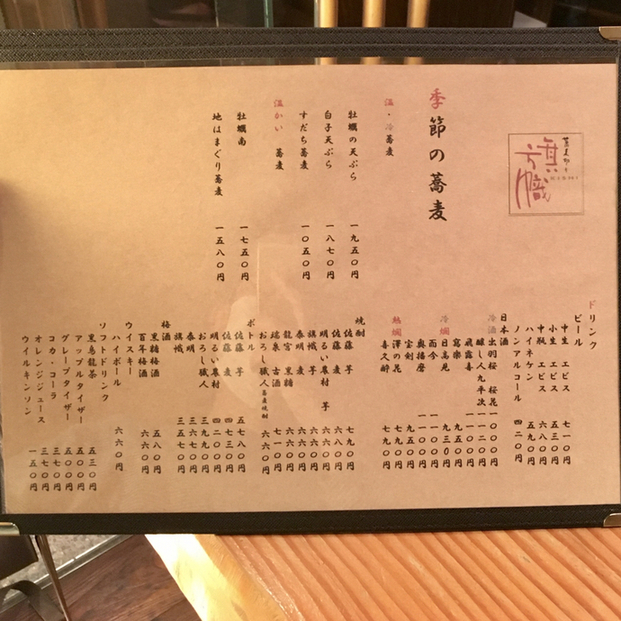 旗幟
季節の蕎麦
温・冷蕎麦
牡蠣の天ぷら 一九五〇円
白子天ぷら 一八七〇円
すだち蕎麦 一〇五〇円
温かい 蕎麦
牡蠣南 一七五〇円
地はまぐり蕎麦 一五八〇円
ドリンク
ビール
中生 エビス 七一〇円
小生 エビス 五三〇円
中瓶 エビス 六八〇円
ハイネケン 五九〇円
ノンアルコール 四二〇円
日本酒
冷酒
出羽桜 桜花 一一〇〇円
醸し人九平次 一一二〇円
飛露喜
寫楽 九五〇円
日高見 九三〇円
冷燗
而今
奥播磨 一一〇〇円
宝剣 九五〇円
熱燗
澤の花
喜久醉 七九〇円
焼酎
佐藤 芋 七九〇円
佐藤 麦 六八〇円
明るい農村 芋
旗幟 芋
泰明 麦
龍宮 黒糖
瑞泉 古酒
おろし職人 蕎麦焼酎 六六〇円
ボトル
佐藤 芋 五七八〇円
佐藤 麦 四七三〇円
明るい農村 四二〇〇円
おろし職人 三九〇〇円
泰明 三五七〇円
旗幟 三五七〇円
梅酒
黒糖梅酒 五八〇円
百年梅酒 六六〇円
ウイスキー
ハイボール 六六〇円
ソフトドリンク
黒烏龍茶 五三〇円
アップルタイザー 五〇〇円
グレープタイザー 五〇〇円
コカ・コーラ 三七〇円
オレンジジュース 三七〇円
ウイルキンソン 一五〇円